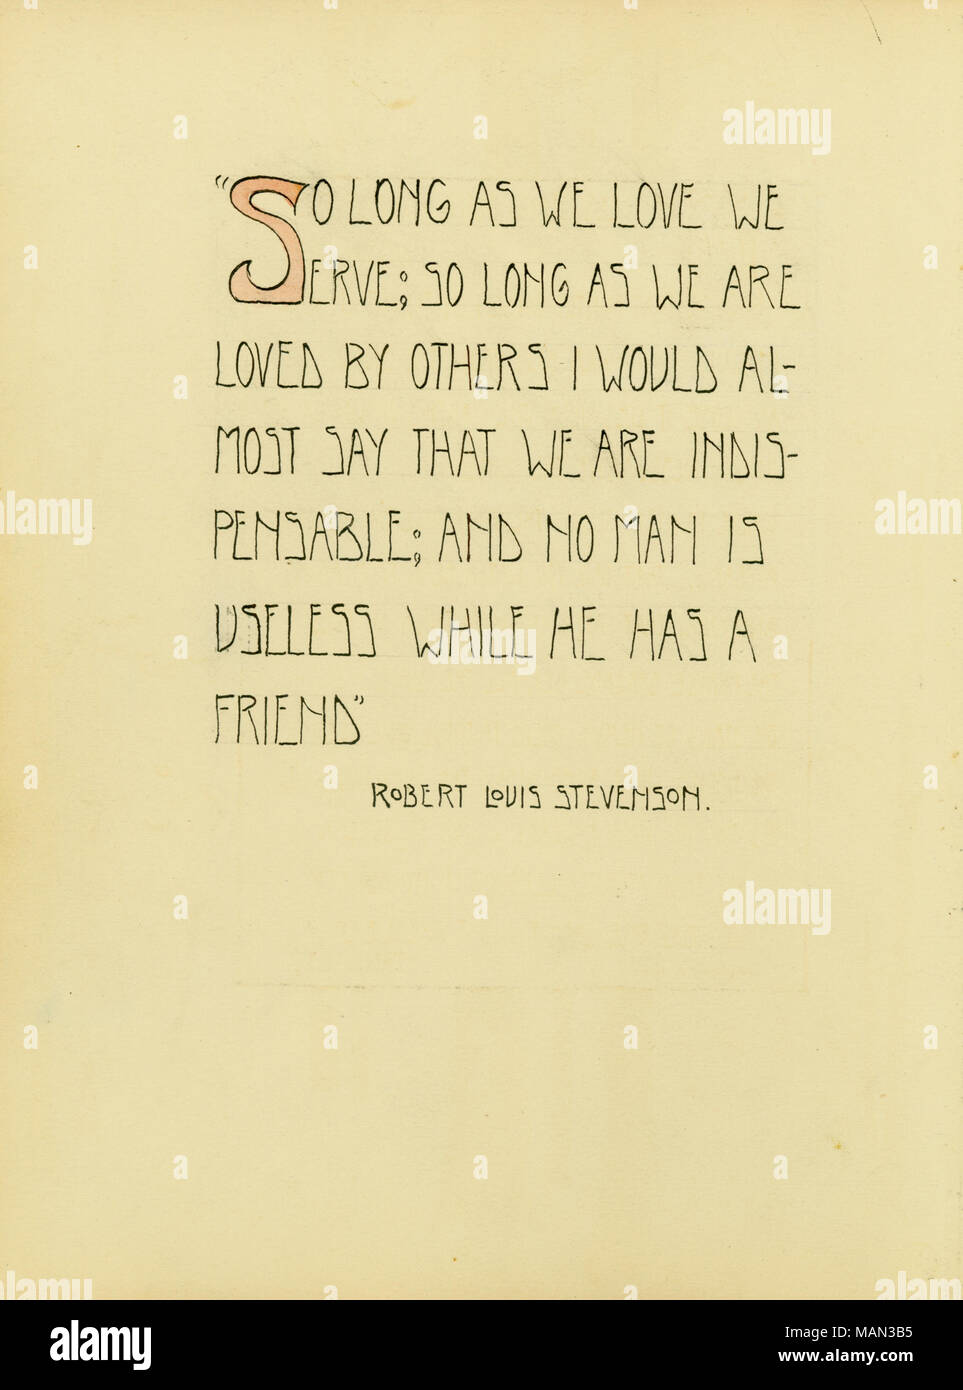 "SO LONG AS WE LOVE WE
SERVE; SO LONG AS WE ARE
LOVED BY OTHERS I WOULD AL-
MOST SAY THAT WE ARE INDIS-
PENSABLE; AND NO MAN IS
USELESS WHILE HE HAS A
FRIEND"
ROBERT LOUIS STEVENSON.
alamy
Image ID: MAN3B5
www.alamy.com